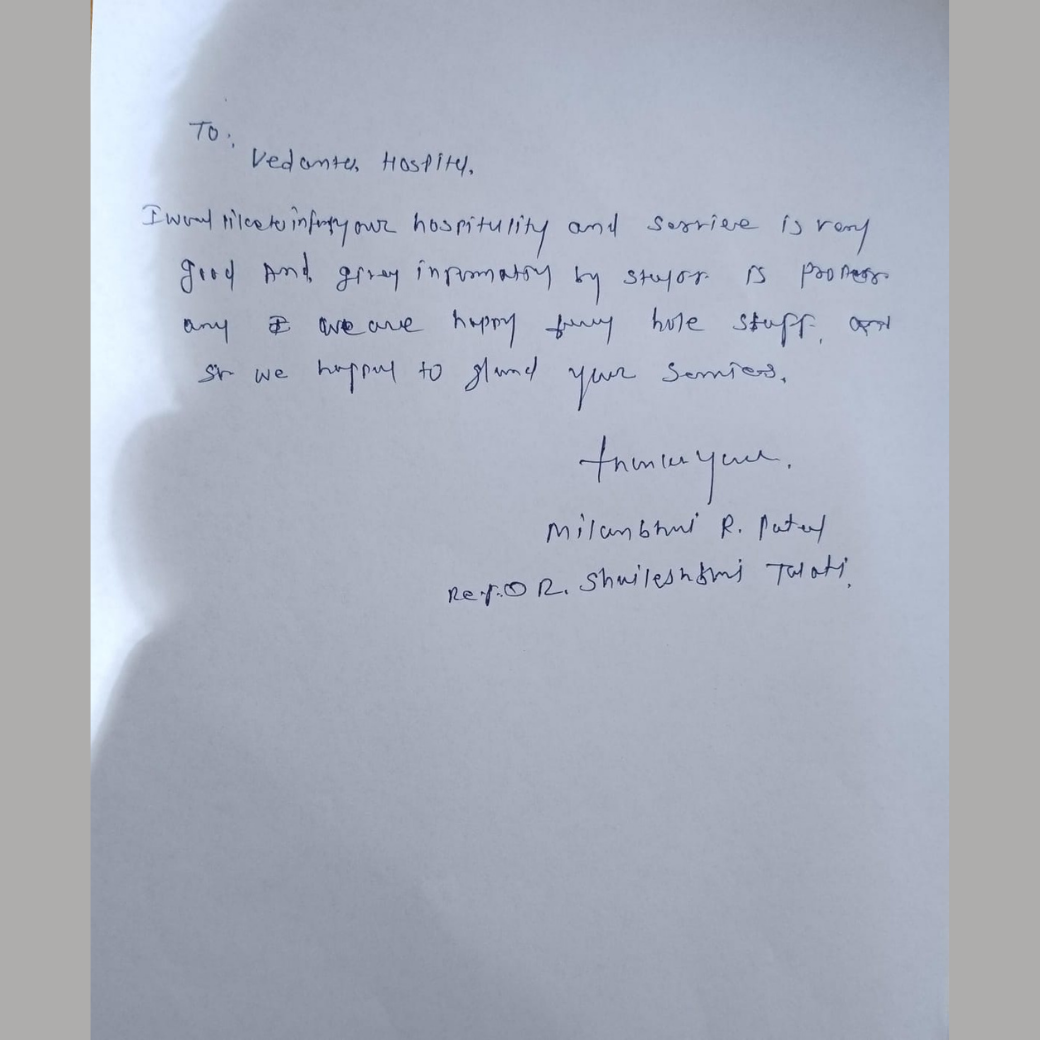 To:,
Vedanta Hospital.
I would like to inform your hospitulity and service is very
good And givey information by staff or is proper
any we are happy hole staff,
Sr we happy to your services.
thank you.
Milanbhai R. Patel
Ref. O R. Shaileshbhai Talati.